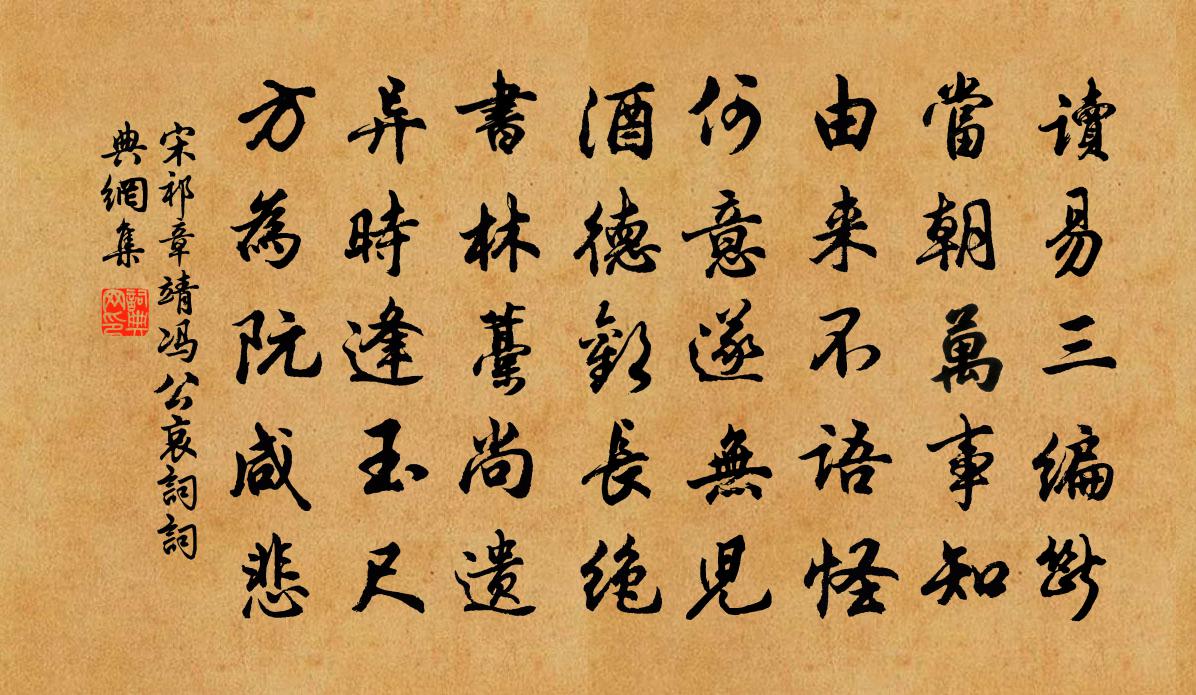 讀易三編斷
當朝萬事知
由来不語怪
何意遂無兒
酒德歡長絶
書林藁尚遺
异時逢玉尺
方為阮咸悲
宋祁章靖冯公哀詞詞
典網集
詞典网印